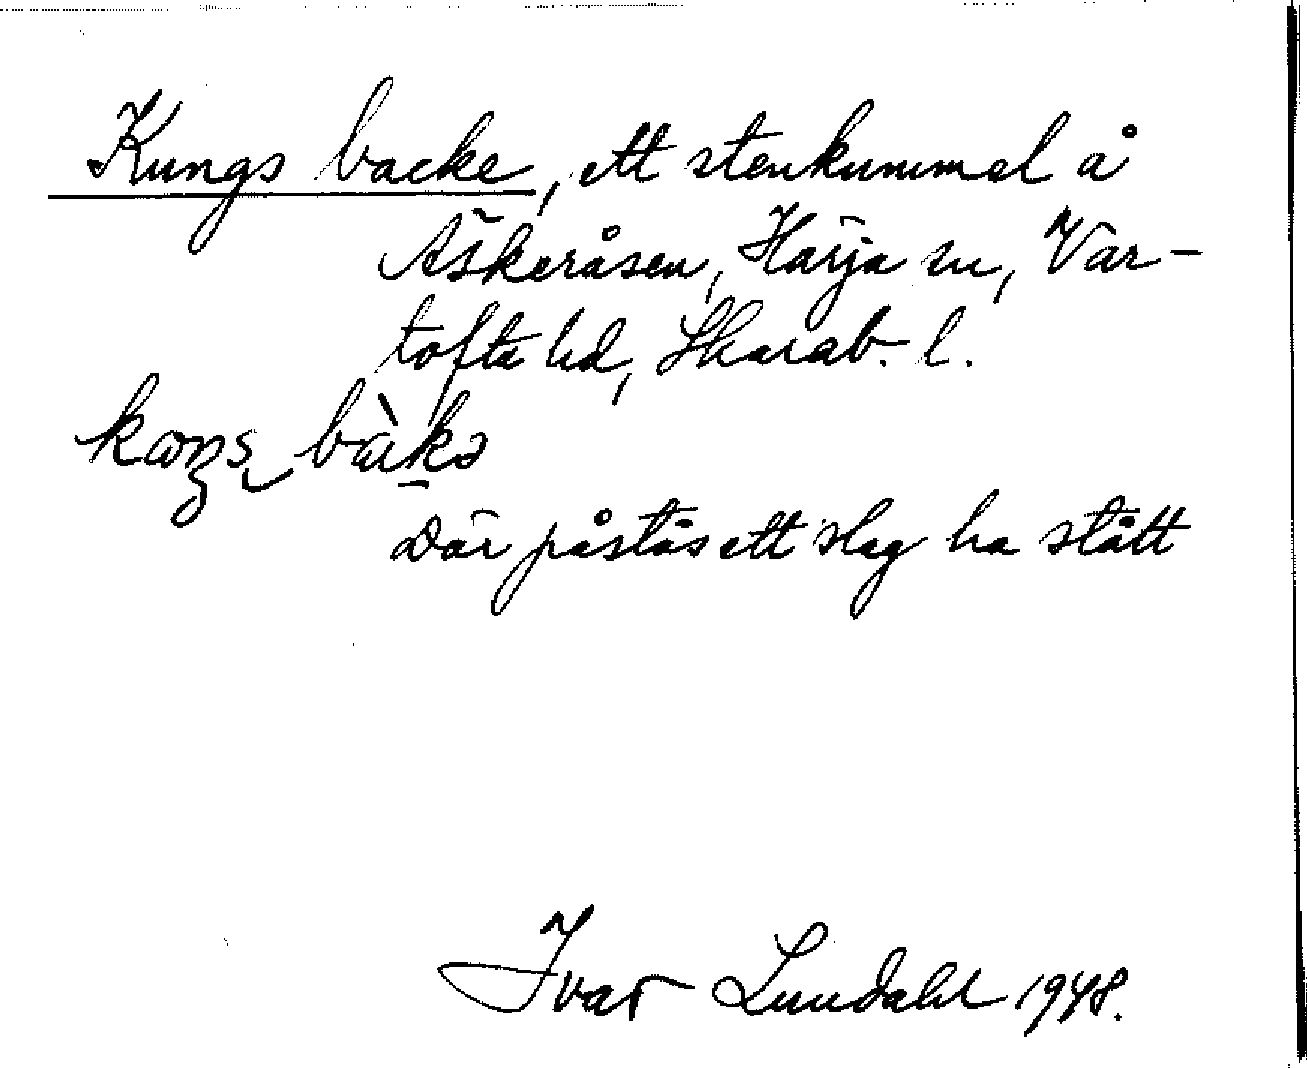 Kungs backe, ett stenkummel å
Äskeråsen, Härja sn, Var-
tofta hd, Skarab. l.
Där påstås ett slag ha stått
Ivar Lundahl 1948.